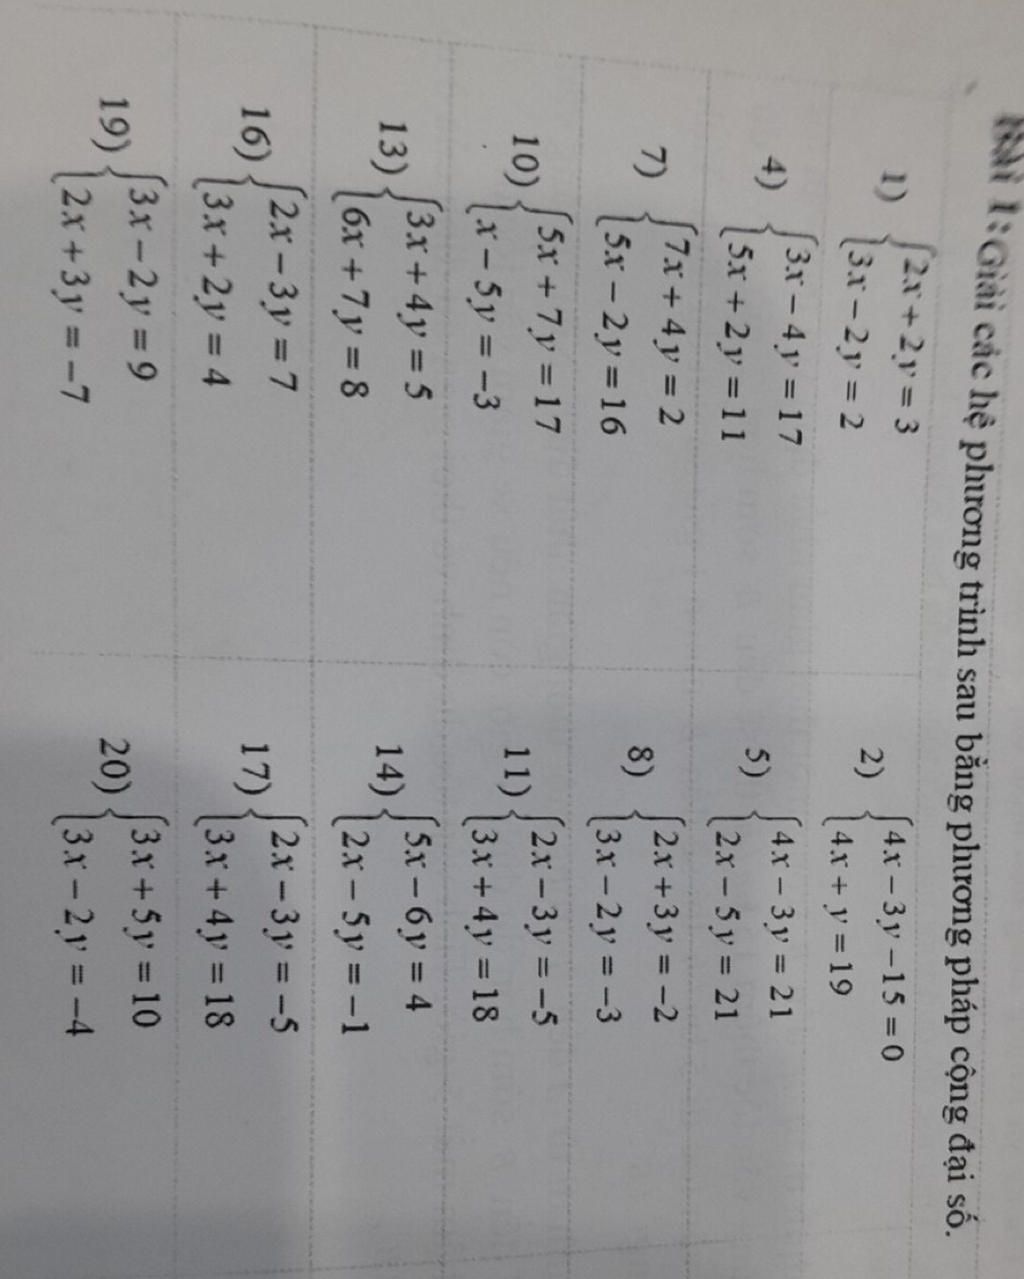 Bài 1: Giải các hệ phương trình sau bằng phương pháp cộng đại số.
1) {2x + 2y = 3
3x − 2y = 2
2) {4x − 3y − 15 = 0
4x + y = 19
4) {3x − 4y = 17
5x + 2y = 11
5) {4x − 3y = 21
2x − 5y = 21
7) {7x + 4y = 2
5x − 2y = 16
8) {2x + 3y = −2
3x − 2y = −3
10) {5x + 7y = 17
x − 5y = −3
11) {2x − 3y = −5
3x + 4y = 18
13) {3x + 4y = 5
6x + 7y = 8
14) {5x − 6y = 4
2x − 5y = −1
16) {2x − 3y = 7
3x + 2y = 4
17) {2x − 3y = −5
3x + 4y = 18
19) {3x − 2y = 9
2x + 3y = −7
20) {3x + 5y = 10
3x − 2y = −4